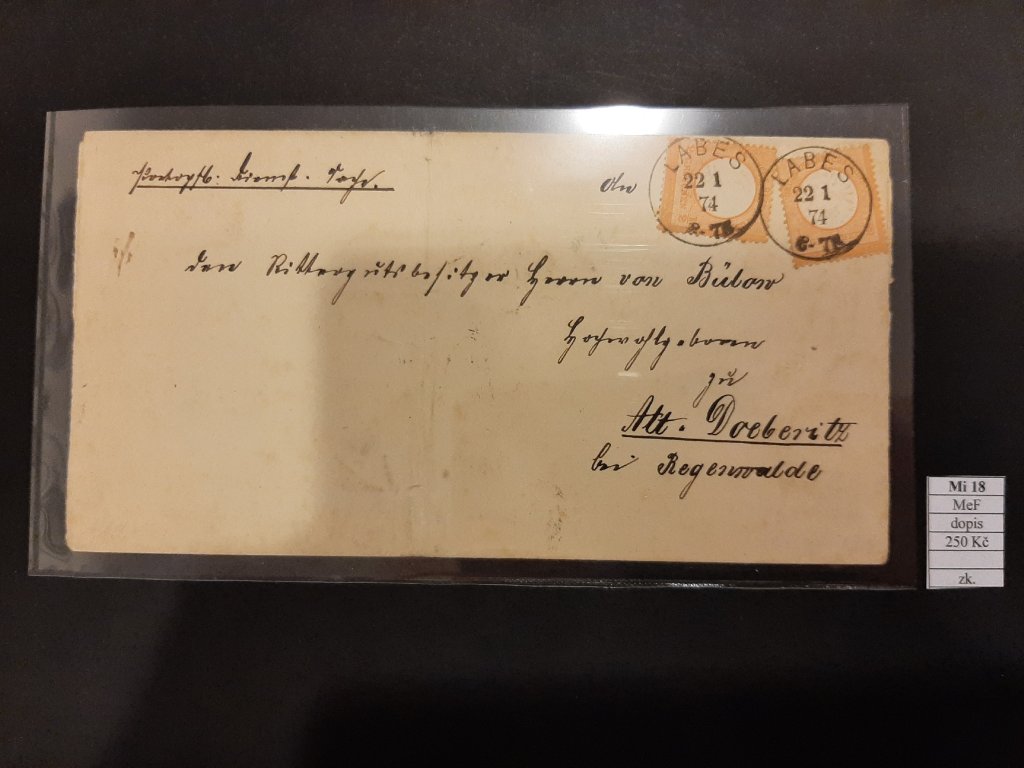 Portopfl. Dienst. Sache.
An
LABES
22 1
74
6-7N
LABES
22 1
74
6-7N
den Rittergutsbesitzer Herrn von Bülow
Hochwohlgeboren
zu
Alt. Doeberitz
bei Regenwalde
Mi 18
MeF
dopis
250 Kč
zk.